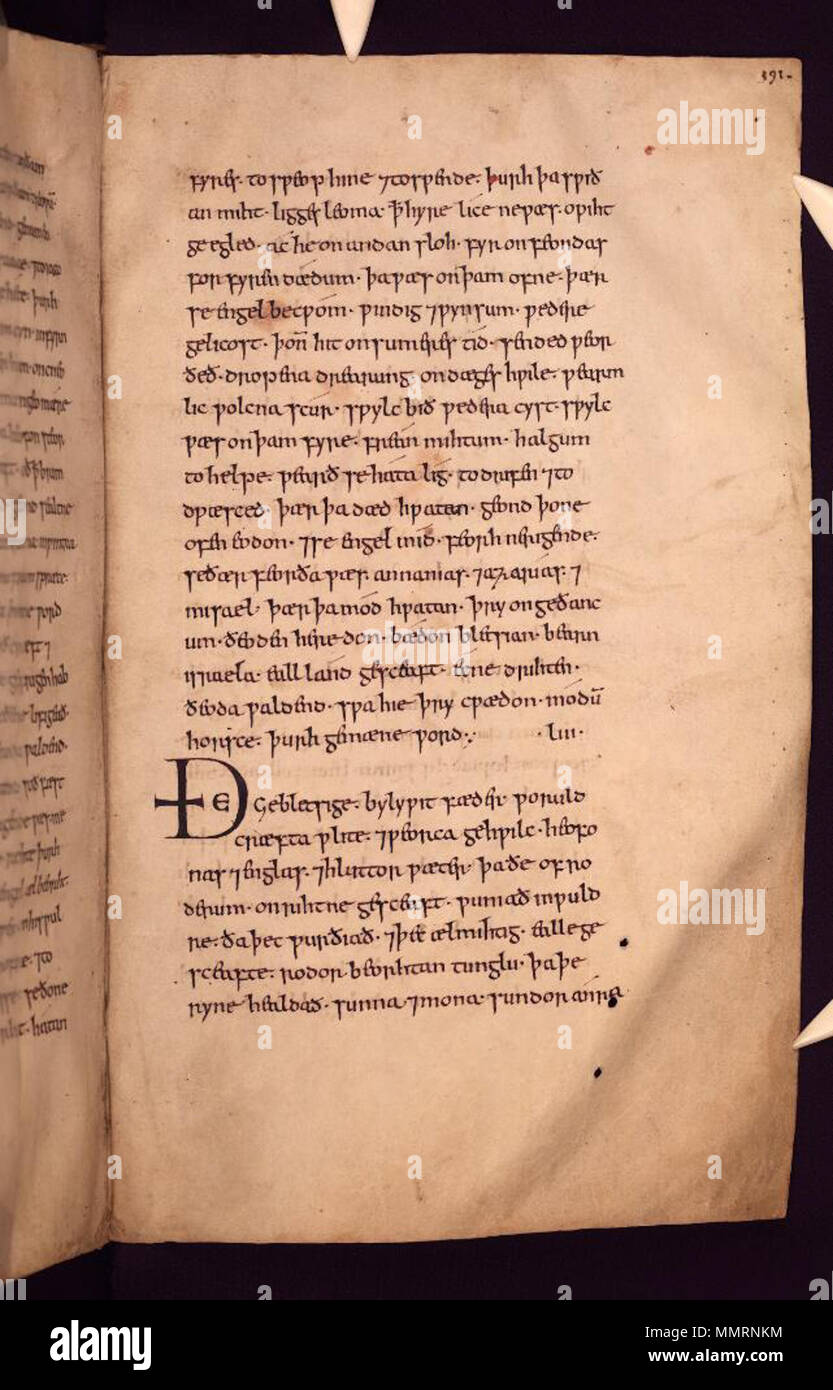 191.
fyres. tosƿeop hine ⁊ tosƿende. þurh þa sƿið
an miht. ligges leoma ꝥ hyre lice ne ƿæs. oƿiht
ge egled. ac he on andan sloh. fyr on feondas
for fyren dædum. þa ƿæs on þam ofne. þær
se engel becƿom. ƿindig ⁊ ƿynsum. ƿedere
gelicost. þon̄ hit on sumeres tid. sended ƿeor
ðeð. dropena drearung on dæges hƿile. ƿearm
lic ƿolcna scur. sƿylc bið ƿedera cyst. sƿylc
ƿæs on þam fyre. frean mihtum. halgum
to helpe. ƿearð se hata lig. to drifen ⁊ to
dƿæsced. þær þa dæd hƿatan. geond þone
ofen eodon. ⁊ se engel mid. feorh nerigende.
se ðær feorða ƿæs. annanias. ⁊ azarias. ⁊
misael. þær þa mod hƿatan. þry on geðanc
um. ðeoden here don. bædon bletsian. bearn
israela. eall land gesceaft. ecne drihten.
ðeoda ƿaldend. sƿa hie þry cƿædon. modū
horsce. þurh gemæne ƿord. .liii.
ÐE Gebletsige. bylyƿit fæder ƿoruld
cræfta ƿlite. ⁊ ƿeorca gehƿilc. heofo
nas ⁊ englas. ⁊ hluttor ƿæter. þa ðe of ro
derum. on rihtne gesceaft. ƿuniað in ƿuld
re. ða þec ƿurðiað. ⁊ þec ælmihtig. ealle ge
sceafte. rodor beorhtan tunglu. þa þe
ryne healdað. sunna. ⁊ mona. sundor anra
alamy
Image ID: MMRNKM
www.alamy.com